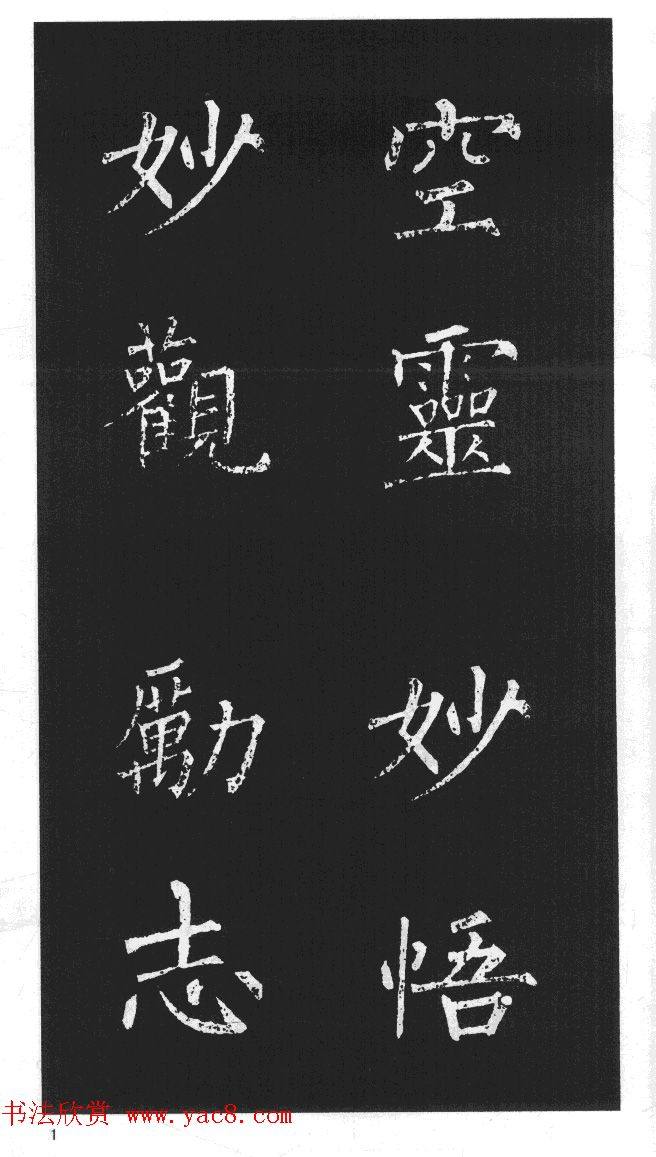 空靈妙悟
妙觀勵志
书法欣赏 www.yac8.com
1